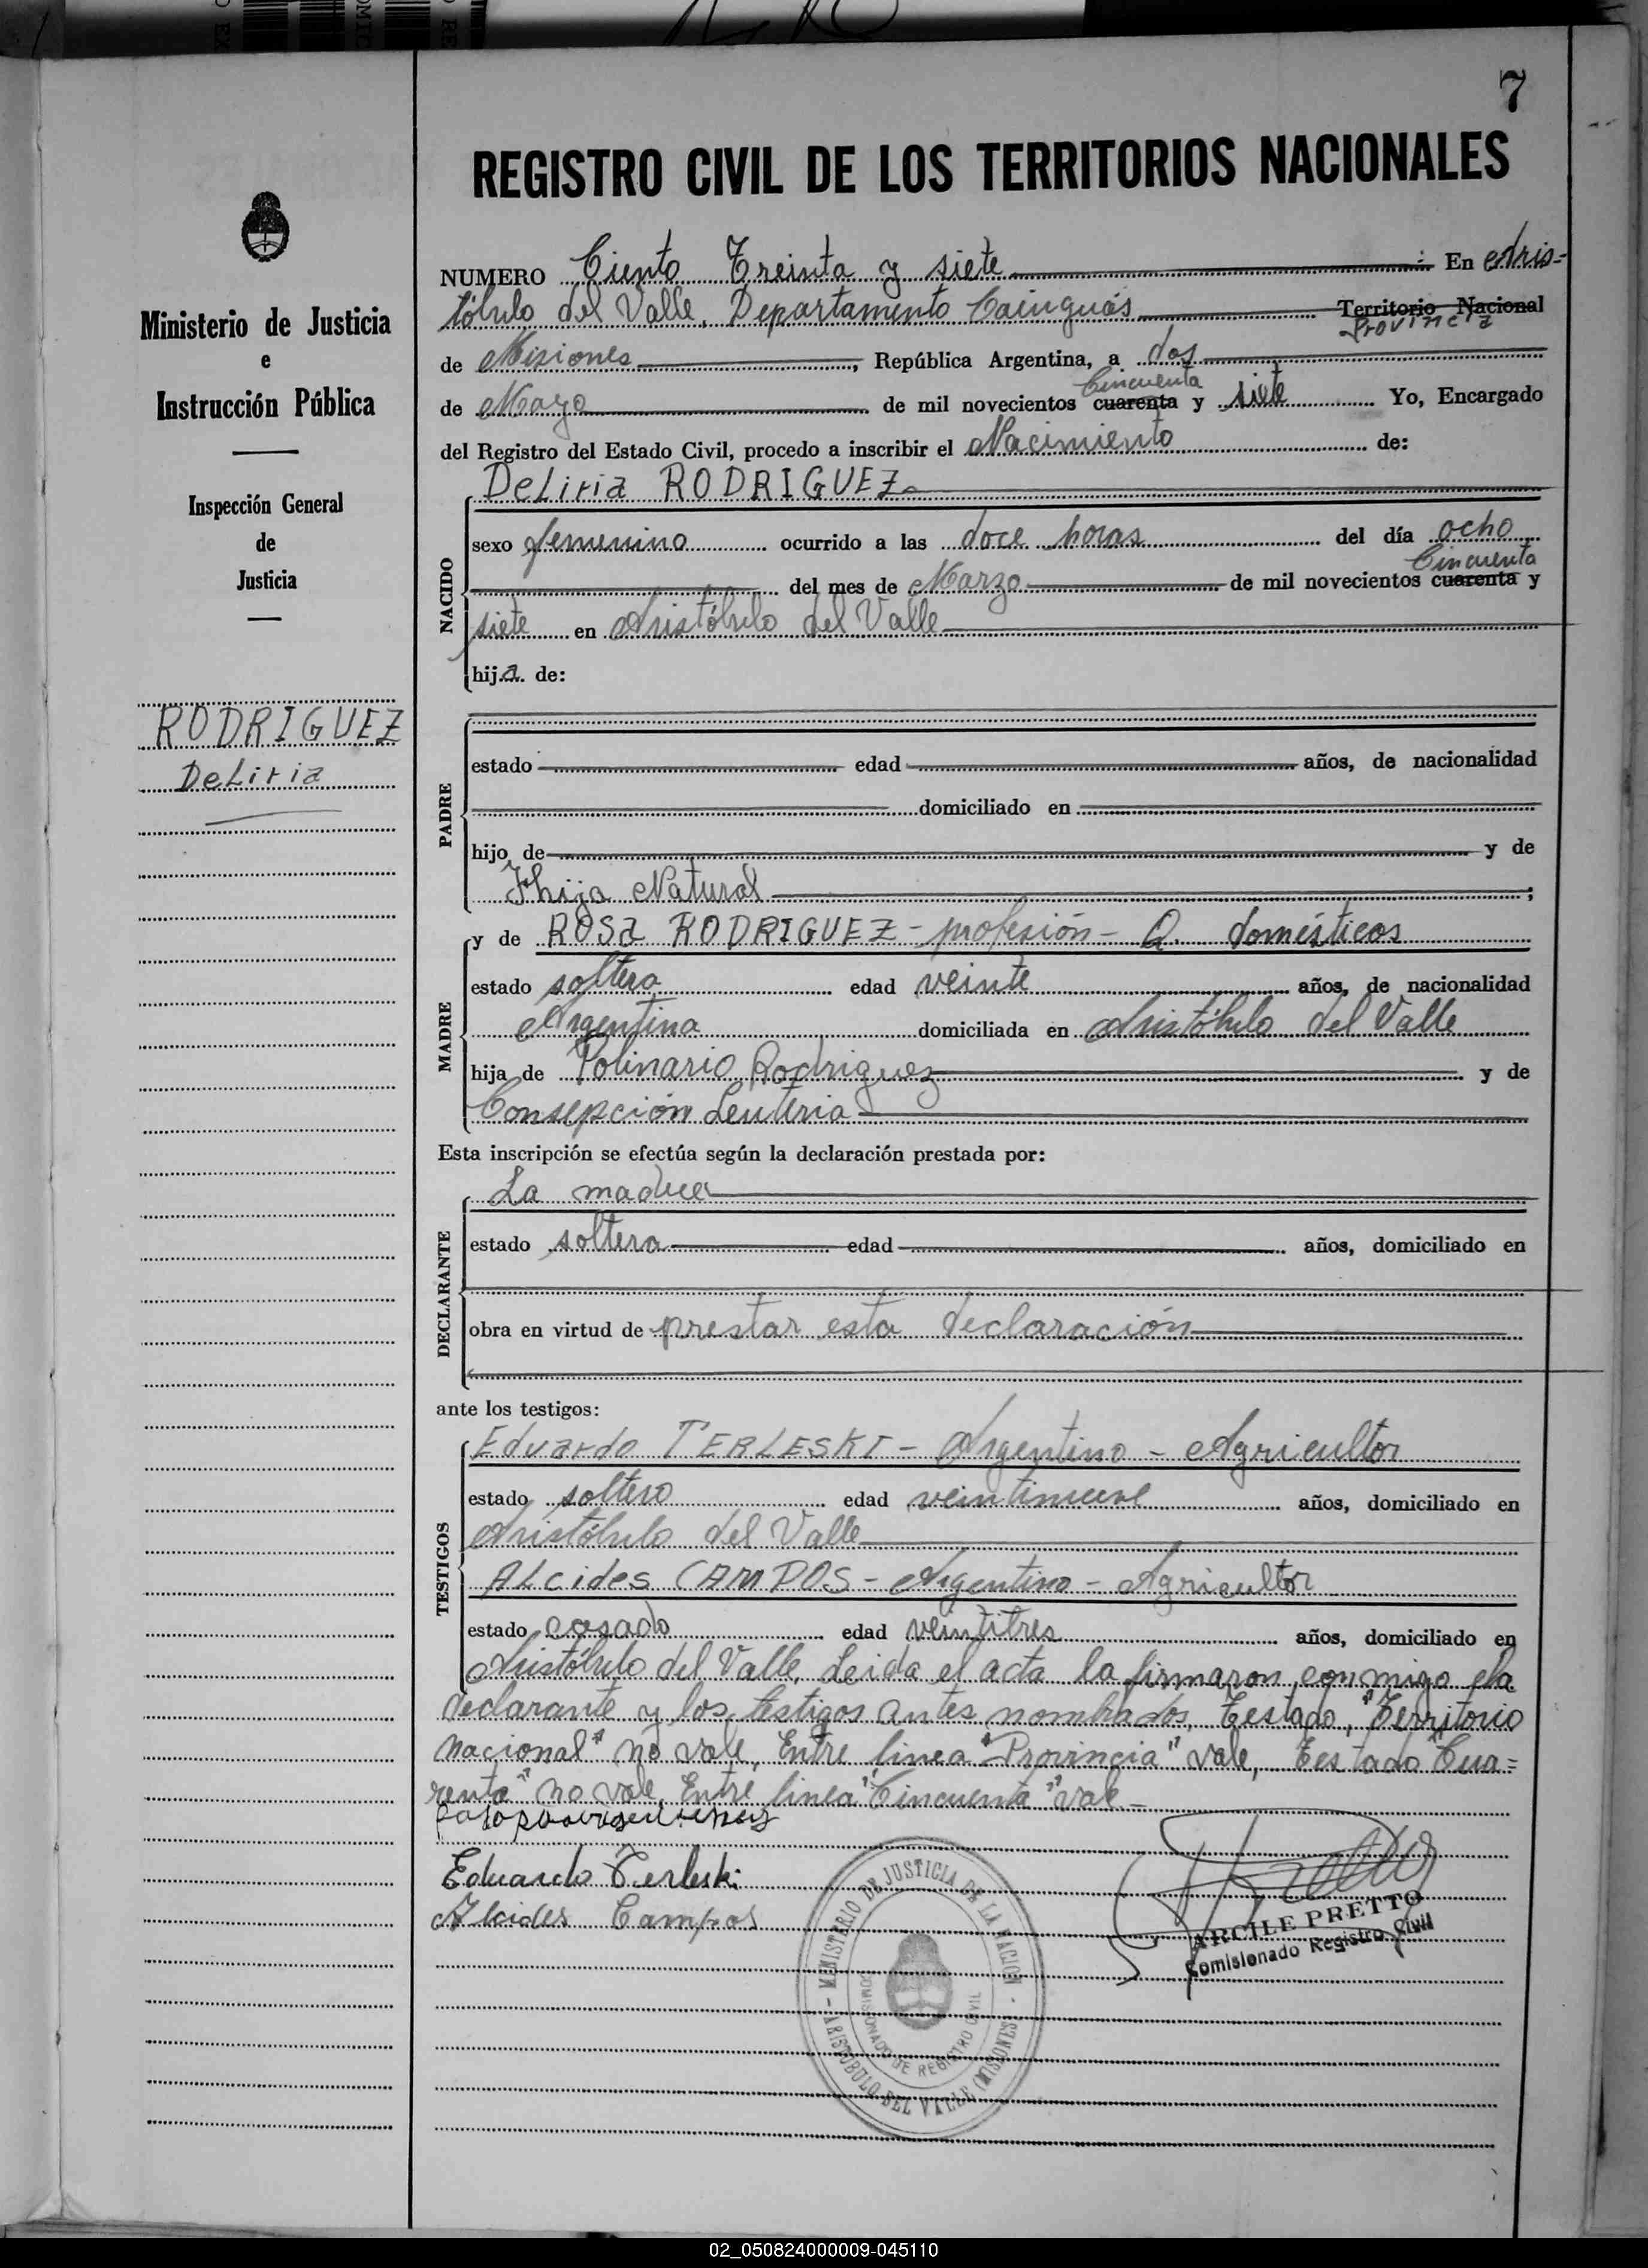 7
REGISTRO CIVIL DE LOS TERRITORIOS NACIONALES
Ministerio de Justicia
e
Instrucción Pública
Inspección General
de
Justicia
RODRIGUEZ
Deliria
NUMERO Ciento Treinta y siete En Aris-
tóbulo del Valle, Departamento Cainguás Territorio Nacional
Provincia
de Misiones, República Argentina, a dos
Cincuenta
de Mayo de mil novecientos cuarenta y siete Yo, Encargado
del Registro del Estado Civil, procedo a inscribir el Nacimiento de:
NACIDO
Deliria RODRIGUEZ
sexo femenino ocurrido a las doce horas del día ocho
Cincuenta
del mes de Marzo de mil novecientos cuarenta y
siete en Aristóbulo del Valle
hija de:
PADRE
estado edad años, de nacionalidad
domiciliado en
hijo de y de
hija Natural ;
MADRE
y de ROSA RODRIGUEZ - profesión - Q. domésticos
estado soltera edad veinte años, de nacionalidad
Argentina domiciliada en Aristóbulo del Valle
hija de Polinario Rodriguez y de
Consepción Leuteria
Esta inscripción se efectúa según la declaración prestada por:
DECLARANTE
La madre
estado soltera edad años, domiciliado en
obra en virtud de prestar esta declaración
ante los testigos:
TESTIGOS
Eduardo TERLESKI - Argentino - Agricultor
estado soltero edad veintinueve años, domiciliado en
Aristóbulo del Valle
Alcides CAMPOS - Argentino - Agricultor
estado casado edad veintitres años, domiciliado en
Aristóbulo del Valle, Leida el acta la firmaron conmigo la
declarante y los testigos antes nombrados, Testado, "Territorio
nacional" no vale, Entre linea "Provincia" vale, Testado "Cua=
renta" no vale, Entre linea "Cincuenta" vale -
Eduardo Terleski
Alcides Campos
MINISTERIO DE JUSTICIA DE LA NACION
COMISIONADO DE REGISTRO CIVIL
ARISTOBULO DEL VALLE (MISIONES)
ARCILE PRETTO
Comisionado Registro Civil
02_050824000009-045110